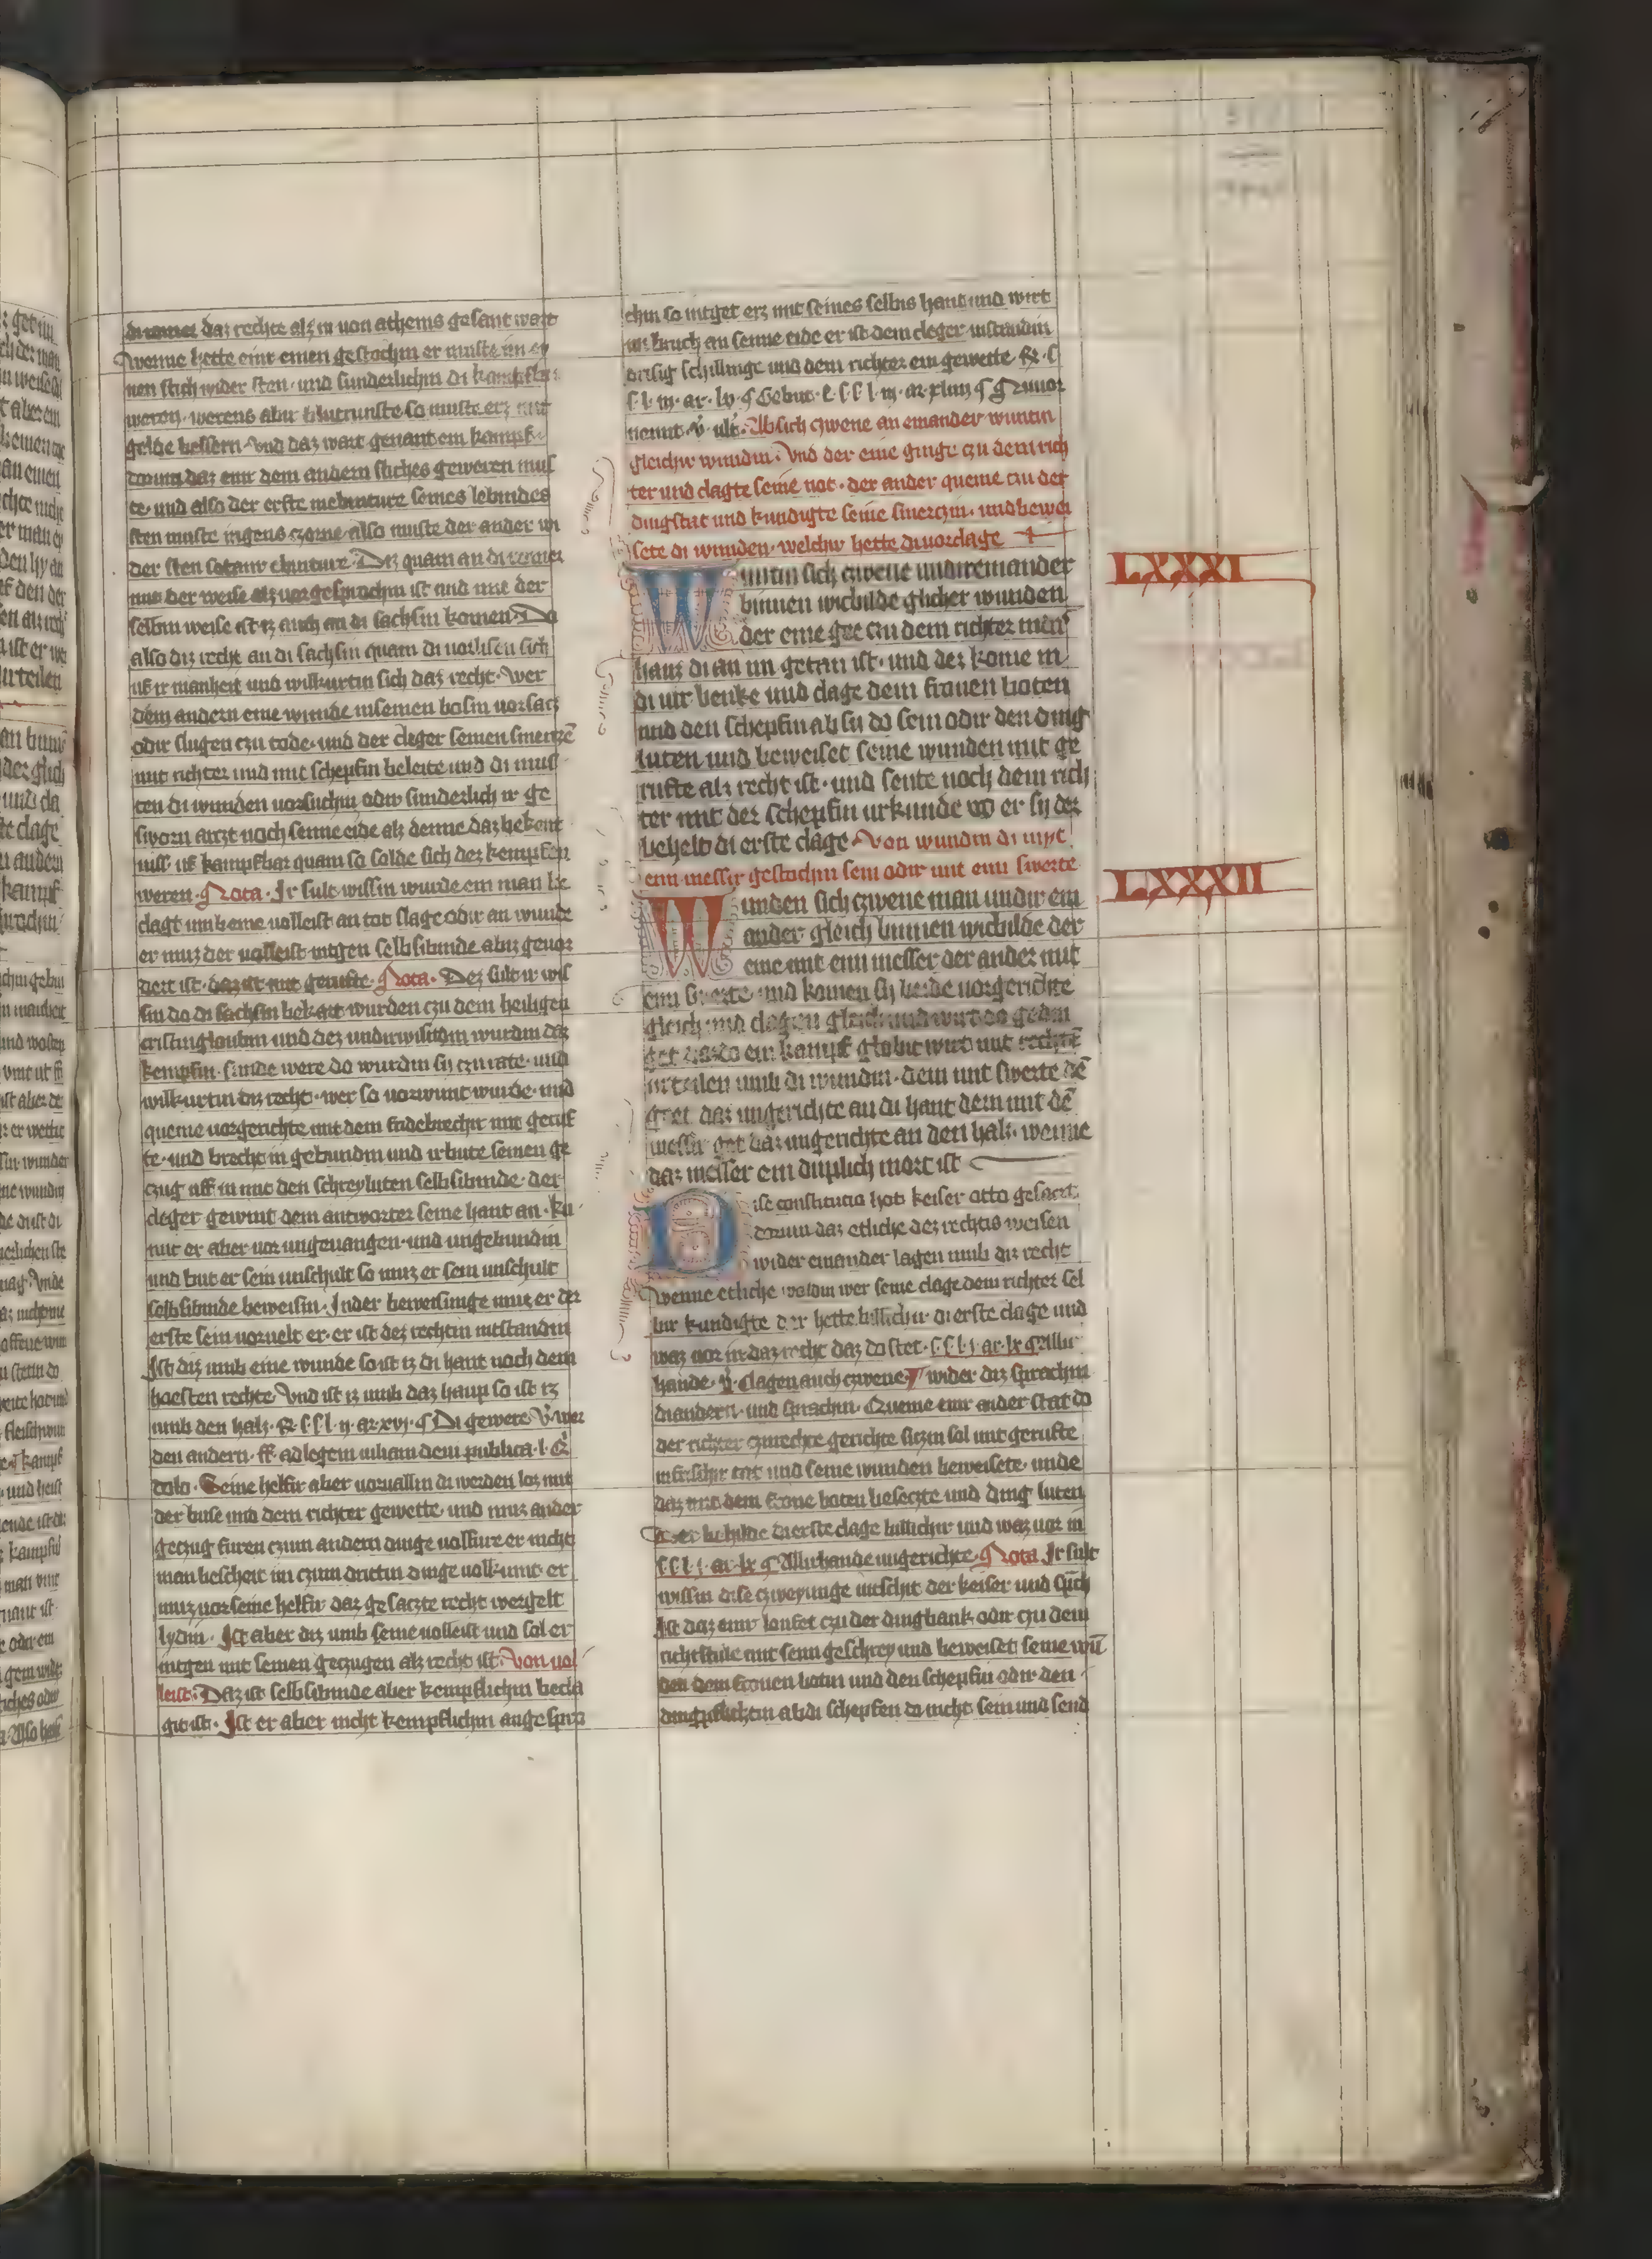 di romer daz rechte alz in von athenis gesant wart
wenne hette einr einen gestochin er muste im ey
nen stich wider sten und sunderlichin di kampfbar
weren werens abir blutrunste so muste erz mit
gelde bessern Vnd daz wart genant ein kampf
dorum daz einr dem andern stiches geweren mus
te und also der erste mebinture seines lebindes
sten muste ingens czorne also muste der ander wi
der sten sotanir ebinture Diz quam an di romer
mit der weise alz vorgesprochin ist und mit der
selbin weise ist iz auch an di sachsin komen Do
also diz recht an di sachsin quam di vorlisin sich
uf ir manheit und wilkurtin sich daz recht wer
dem andern eine wunde in seinen bosin vorsacz
odir slugen czu tode und der cleger seinen smerczē
mit richter und mit schepfin beleite und di mus
ten di wunden vorsuchin odir sunderlich ir ge
sworn arczt noch seime eide alz denne daz bekent
niss uf kampfbar quam so solde sich dez kempfen
weren Nota Ir sult wissin wurde ein man be
clagt umb eine volleist an tot slage odir an wunde
er muz der volleist intgen selbsibinde abirz gevor
dert ist daz ist mit gerufte Nota Dez sult ir wis
sin do di sachsin bekart wurden czu dem heiligen
cristingloubin und dez undirwisitim wurdin daz
kempfin sunde were do wurdin sy czu rate und
wilkurtin diz recht wer so vorwunt wurde und
queme vorgerichte mit dem fridebrechir mit geruf
te und brecht in gebundin und irbute seinen ge
czug uff in mit den schreyluten selbsibinde der
cleger gewint dem antworter seine hant an Ku
mt er aber vor ungevangen und ungebundin
und but er sein unschult so muz er sein unschult
selbsibinde beweisin In der beweisunge muz er der
erste sein vorvelt er er ist dez rechtin intstandin
Ist diz umb eine wunde so ist iz di hant noch dem
hoesten rechte Vnd ist iz umb daz haup so ist iz
umb den halz
den andern ff ad legem iuliam dem publica l q̄
dolo Seine helfir aber vorvallin di werden loz mit
der buse und dem richter gewette und muz ander
geczug furen czum andern dinge volfure er nicht
man bescheit im czum drittin dinge volkumt er
muz vor seine helfir daz gesaczte recht wergelt
lydin Ist aber diz umb seine volleist und sol er
intgen mit seinen geczugen alz recht ist Von vol
leist Daz ist selbsibinde aber kempflichin becla
git ist Ist er aber nicht kempflichin angespro
chin so intget erz mit seines selbis hand und wirt
im bruch an seime eide er ist dem cleger intstandin
drisig schillinge und dem richter ein gewette
nemit v̓ ult̓ Ab sich czwene an einander wuntin
gleichir wundin Vnd der eine ginge czu dem rich
ter und clagte seine not der ander queme czu der
dingstat und kundigte seine smerczin und bewei
sete di wunden welchir hette di vorclage
LXXXI
Wuntin sich czwene undireinander
binnen wicbilde glicher wunden
der eine gee czu dem richter in des
hauz di an im getan ist und der kome in
di vir benke und clage dem fronen boten
und den schepfin ab sy do sein odir den ding
luten und beweiset seine wunden mit ge
rufte alz recht ist und sente noch dem rich
ter mit der schepfin urkunde wo er sy der
behelt di erste clage Von wundin di mit
eim messir gestochin sein odir mit eim swerte
LXXXII
Wunden sich czwene man undir ein
ander gleich binnen wicbilde der
eine mit eim messer der ander mit
eim swerte und komen sy beide vorgerichte
gleich und clagen gleich und wirt do gedin
get daz do ein kampf globit wirt mit rechtē
urteilen umb di wundin dem mit swerte dē
get daz ungerichte an di hant dem mit dē
messir get daz ungerichte an den halz wenne
daz messer ein duplich mort ist
Dise constitutio hot keiser otto gesaczt
dorum daz etliche dez rechtis weisen
wider einander lagen umb diz recht
wenne etliche woldin wer seine clage dem richter sel
bir kundigte der hette billichir di erste clage und
waz vor in daz recht daz do stet
hande v̓ clagen auch czwene wider diz sprachin
di andern und sprachin Queme einr ander stat do
der richter czurechte gerichte siczin sol mit gerufte
in frischir tat und seine wunden beweisete unde
daz mit dem frone boten beseczte und ding luten
der behilde di erste clage billichir und waz vor in
Allirhande ungerichte Nota Ir sult
wissin dise czweyunge intschit der keiser und sprich
Ist daz einr loufet czu der dingbank odir czu dem
richtstule mit seim geschrey und beweiset seine wū
den dem fronen botin und den schepfin odir den
dingpflichtin ab di schepfen do nicht sein und send